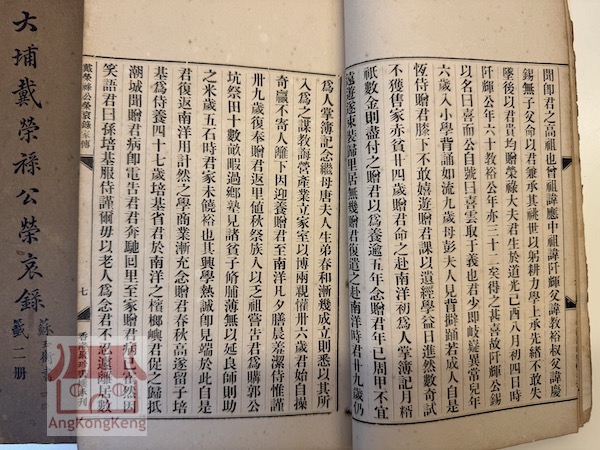 大埔戴榮祿公榮哀錄
二冊
聞卽君之高祖也曾祖諱應中祖諱阡輝父諱教裕叔父諱慶
錫無子父命以君兼承其祧世以躬耕力學上承先緒不敢失
墜後以君貴均贈榮祿大夫君生於道光己酉八月初四日時
阡輝公年六十教裕公年亦三十二矣得之甚喜故阡輝公錫
以名曰喜而公自號曰喜雲取于義也君少卽岐嶷異常兒年
六歲入小學背誦如流九歲母彭夫人見背擗踊若成人自是
恆侍贈君膝下不敢嬉遊贈君課以遺經學益日進然數奇試
不獲售家亦貧廿四歲贈君命之赴南洋初爲人掌簿記月糈
祇數金則盡付之贈君以爲養逾五年念贈君年已周甲不宜
遠遊遂束裝歸里居無幾贈君復遣之赴南洋時君廿九歲仍
爲人掌簿記念繼母唐夫人生弟春和漸幾成立則悉以其所
入爲之謀教誨營產業立家室以博兩親權甫卅六歲君始自操
奇贏不寄人籬下因迎養贈君至南洋凡夕膳晨羞潔侍惟謹
卅九歲復奉贈君返里値秋祭族人以乏祖嘗告君爲購郭公
坑祭田十數畝暇過鄉塾見諸貧子脩脯薄無以延良師則助
之米歲五石時君家未饒裕也其興學熱誠卽見端於此自是
君復返南洋用計然之學商業漸充念贈君春秋高遂留子培
基爲侍養四十七歲培基省君於南洋之檳榔嶼君促之歸抵
潮城聞贈君病卽電告君君奔馳回里至家贈君病已省然因
笑語君曰孫培基服侍謹爾毋以老人爲念君不忍遽離居數
戴榮祿公榮哀錄 家傳
七
AngKongKeng